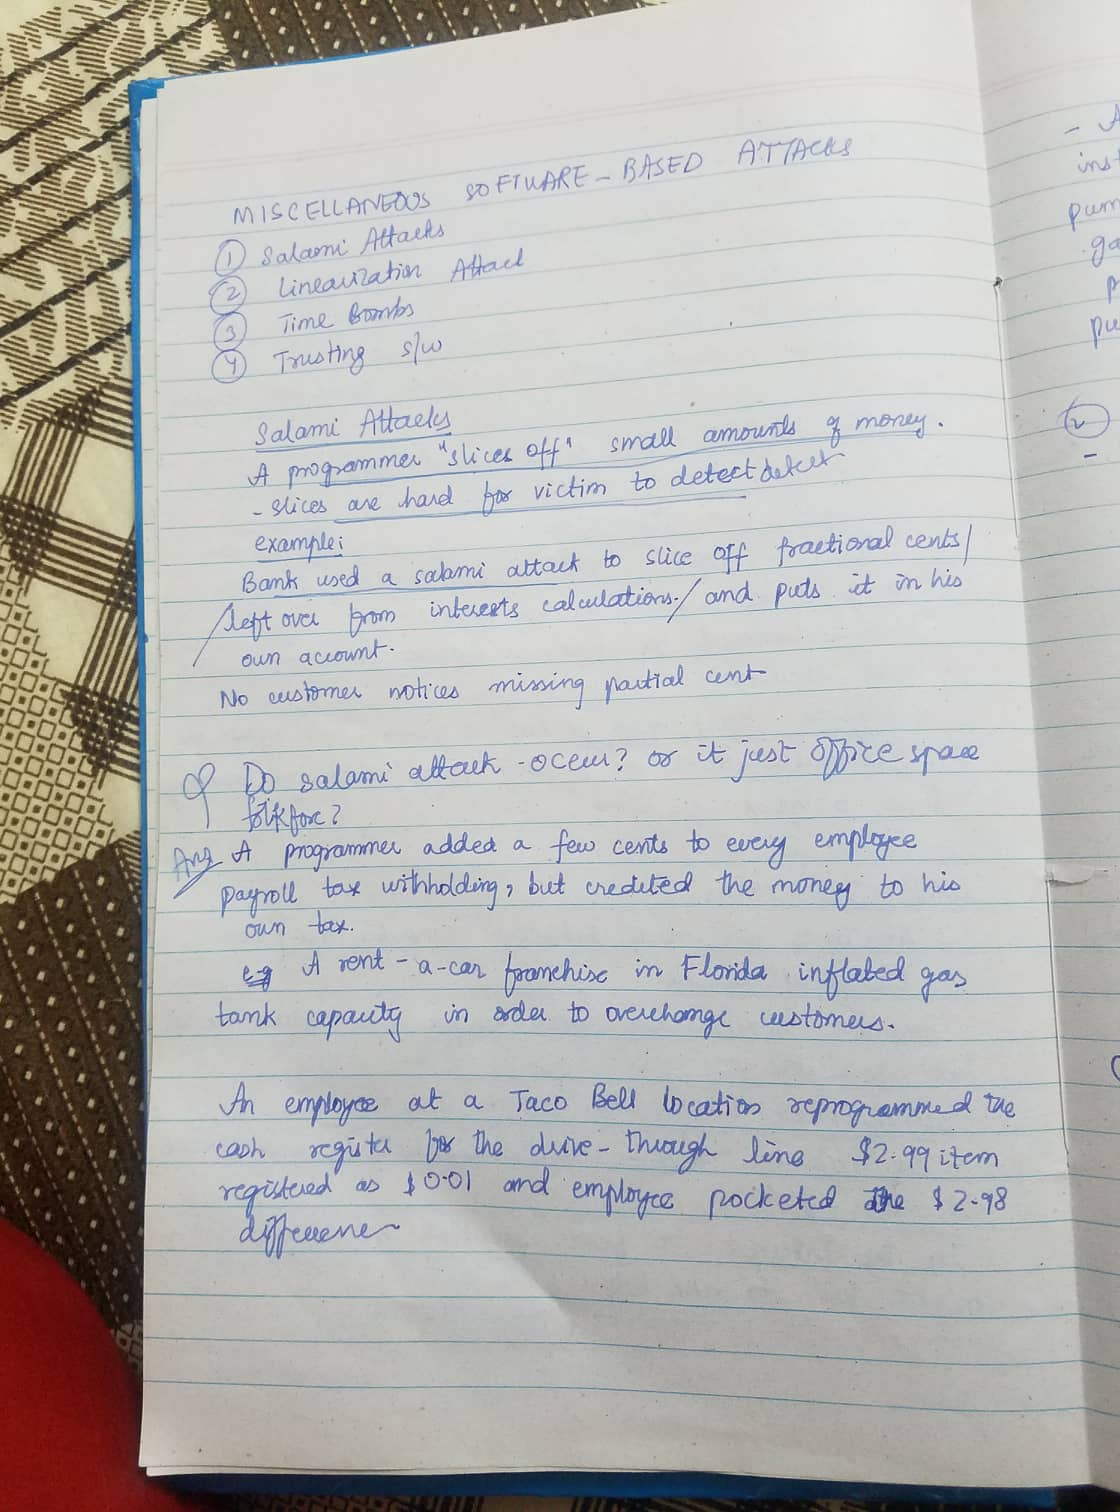 MISCELLANEOUS SOFTWARE-BASED ATTACKS
① Salami Attacks
② Linearization Attack
③ Time Bombs
④ Trusting s/w
Salami Attacks
A programmer "slices off" small amounts of money.
- slices are hard for victim to detect detect
example:
Bank used a salami attack to slice off fractional cents/
/left over from interests calculations./ and puts it in his
own account.
No customer notices missing partial cent
Q Do salami attack -occur? or it just office space
folkfore?
Ans A programmer added a few cents to every employee
payroll tax withholding, but credited the money to his
own tax.
eg A rent-a-car franchise in Florida inflated gas
tank capacity in order to overcharge customers.
An employee at a Taco Bell location reprogrammed the
cash register for the drive-through line $2.99 item
registered as $0.01 and employee pocketed the $2.98
difference
- A
inst
pum
ga
p
pu
②
-